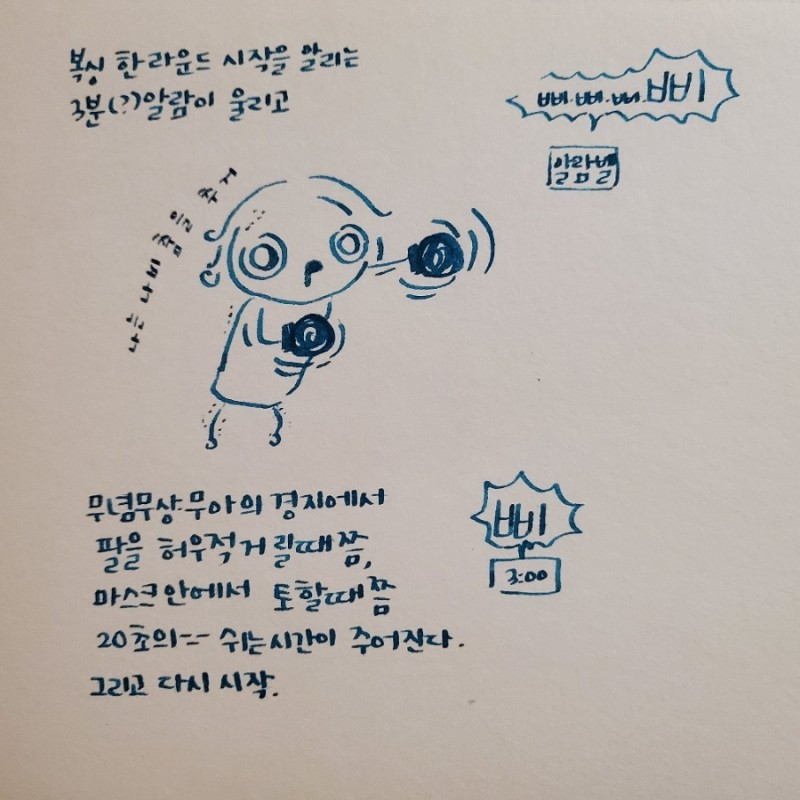 복싱 한라운드 시작을 알리는
3분(?)알람이 울리고
삐·삐·삐·삐
알람벨
나는 나비 춤을 추거
무념무상·무아의 경지에서
팔을 허우적거릴때쯤,
마스크안에서 토할때쯤
20초의-- 쉬는시간이 주어진다.
그리고 다시 시작.
삐
3:00